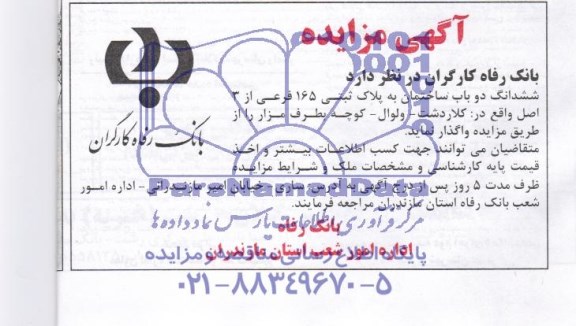 آگهی مزایده
بانک رفاه کارگران در نظر دارد
ششدانگ دو باب ساختمان به پلاک ثبتی ۱۶۵ فرعی از ۳
اصل واقع در: کلاردشت- اولوال- کوچه بطرف مزار را از
طریق مزایده واگذار نماید.
متقاضیان می توانند جهت کسب اطلاعات بیشتر و اخذ
قیمت پایه کارشناسی و مشخصات ملک و شرایط مزایده
ظرف مدت ۵ روز پس از درج آگهی به آدرس ساری - خیابان امیر مازندرانی - اداره امور
شعب بانک رفاه استان مازندران مراجعه فرمایند.
بانک رفاه
اداره امور شعب استان مازندران
بانک رفاه کارگران
ParsNamadData
مرکز فرآوری اطلاعات پارس نماد داده ها
پایگاه اطلاع رسانی مناقصه و مزایده
۰۲۱-۸۸۳۴۹۶۷۰-۵